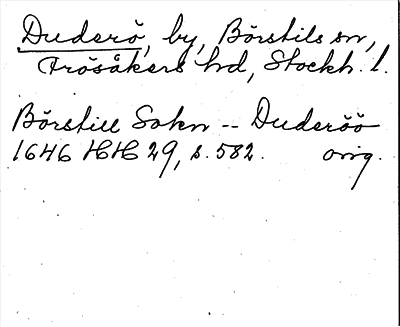 Duderö, by, Börstils sn,
Frösåkers hd, Stockh. l.
Börstill Sokn -- Duderöö
1646 HH 29, s. 582. orig.